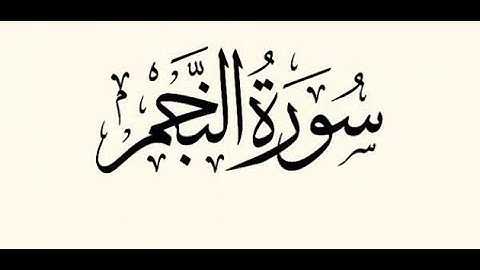 سُورَةُ النَّجْم